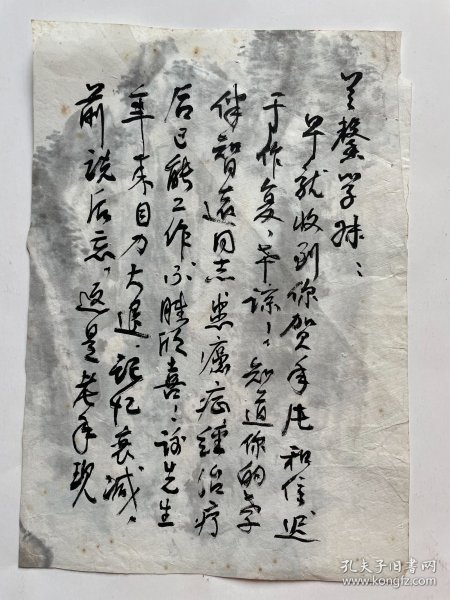 兰馨学妹：
早就收到你贺年片和信迟
于作复、乞谅！知道你的老
伴智远同志患癌症经治疗
后已能工作不胜欣喜！谈先生
年来目力大退、记忆衰减，
前说后忘，这是老年现
孔夫子旧书网
www.kongfz.com